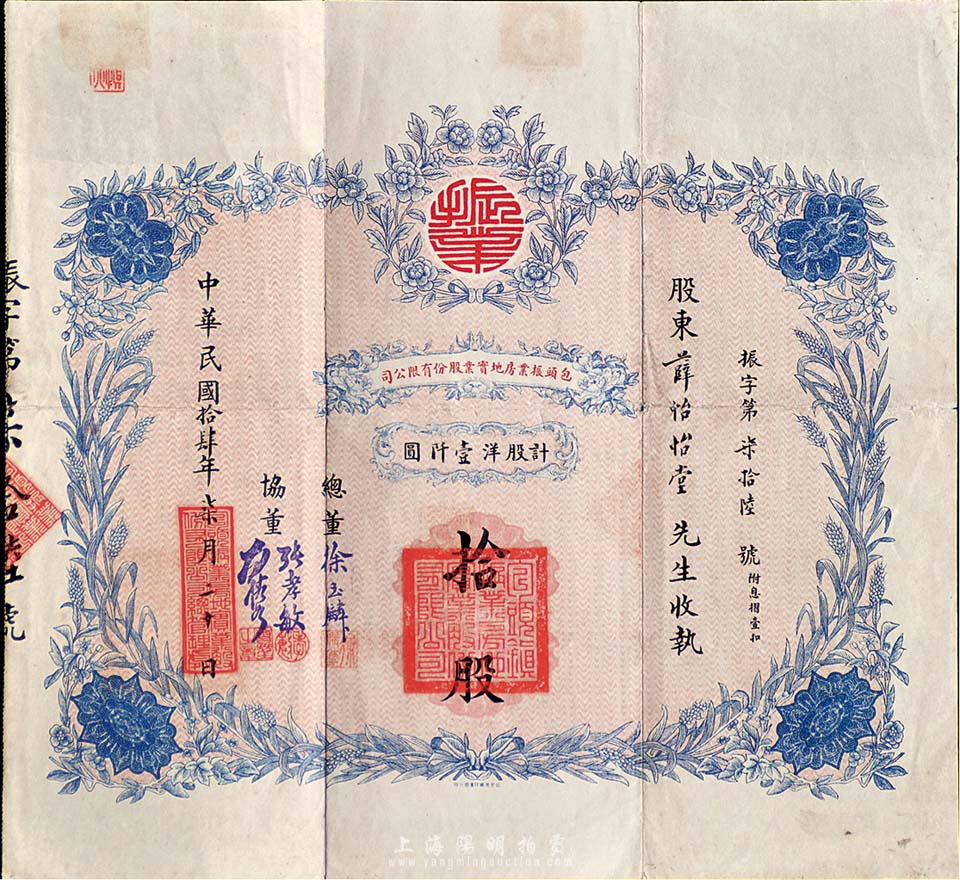 振業
振字第柒拾陸號附息摺壹扣
股東薛怡怡堂先生收執
包頭振業房地實業股份有限公司
計股洋壹阡圓
拾股
總董徐玉麟
協董張孝敏
中華民國拾肆年柒月二十日
上海陽明拍賣
www.yangmingauction.com